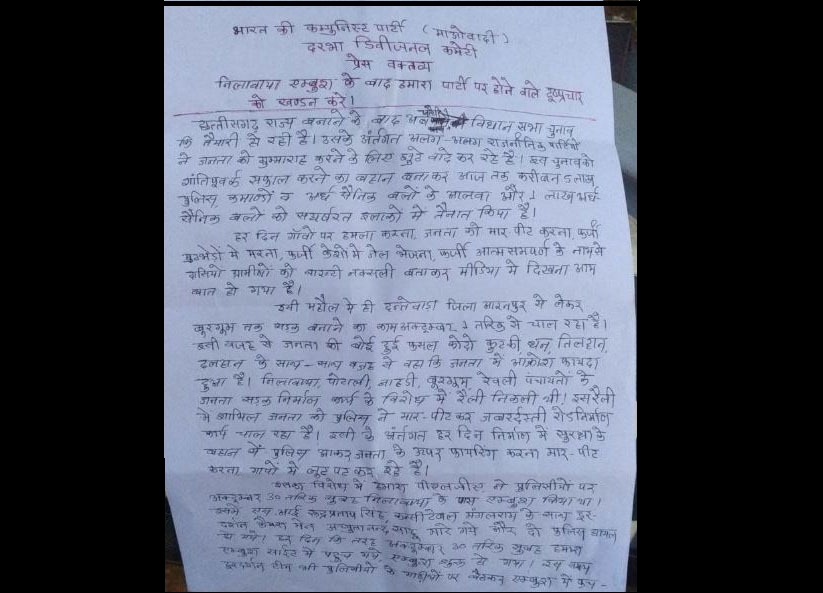 भारत की कम्युनिस्ट पार्टी (माओवादी)
दरभा डिवीजनल कमेटी
प्रेस वक्तव्य
निलावाया एम्बुश के बाद हमारा पार्टी पर होने वाले दुष्प्रचार
को खण्डन करे!
छत्तीसगढ़ राज्य बनाने के बाद अब विधान सभा चुनाव
कि तैयारी हो रही है। उसके अंर्तगत अलग-अलग राजनीतिक पार्टियों
ने जनता को गुमाराह करने के लिए झुटे वादे कर रहे है। इस चुनाव को
शांतिपूवर्क सफाल करने का बहान बनाकर आज तक करीबन 5 लाख
पुलिस कमाण्डों व अर्ध सैनिक बलों के आलवा और 1 लाख अर्ध
सैनिक बलो को संघर्षरत इलाकों मे तैनात किया है।
हर दिन गाँवों पर हमला करना, जनता को मार पीट करना, फर्जी
मुठभेड़ों मे मरना, फर्जी केशो मे जेल भेजना, फर्जी आत्मसमपर्ण के नाम से
ग्रामीणों को वारन्टी नक्सली बताकर मीडिया मे दिखना आम
बात हो गया है।
इसी महौल मे ही दन्तेवाडा जिला आरनपुर से लेकर
बुरगुम तक सडक बनाने का काम अक्टुम्बर 1 तारिक से चाल रहा है।
इसी वजह से जनता की बोई हुई फसल कोदो कुटकी, धन, तिलहान,
दलहान के साथ-साथ वजह से वहा कि जनता मे आक्रोश फायदा
हुआ है। निलावाया, पोटाली, नाहडी, बुरगुम, रेवली पंचायतो के
जनता सडक निर्माण कार्य के विरोध में रैली निकली थी। इस रैली
मे शामिल जनता को पुलिस ने मार-पीट कर जबरर्दस्ती रोड निर्माण
कार्य चाल रहा है। इसी के अंर्तगत हर दिन निर्माण में सुरक्षा के
बहान में पुलिस आकर जनता के ऊपर फायरिंग करना मार-पीट
करना गावों मे लूट पट कर रहे है।
इसका विरोध में हमारा पीएलजीए ने पुलिसीयों पर
अक्टुम्बर 30 तारिक सुबह निलावाया के पास एम्बुश किया था।
इसमे एस.आई रूद्रप्रताप सिंह, कन्सटेबल मंगलराम के साथ दुर-
दर्शन केमरा मेन अच्युतानन्द साहू मारे गये और दो पुलिस घायल
हो गये। हर दिन कि तरह अक्टुम्बर 30 तारिक सुबह हमारा
एम्बुश साईट मे पहूच गये एम्बुश शुरू हो गया। इस वक्त
दुरदर्शन टीम भी पुलिसीयो के गाडीयों पर बैठकर एम्बुश में फस-